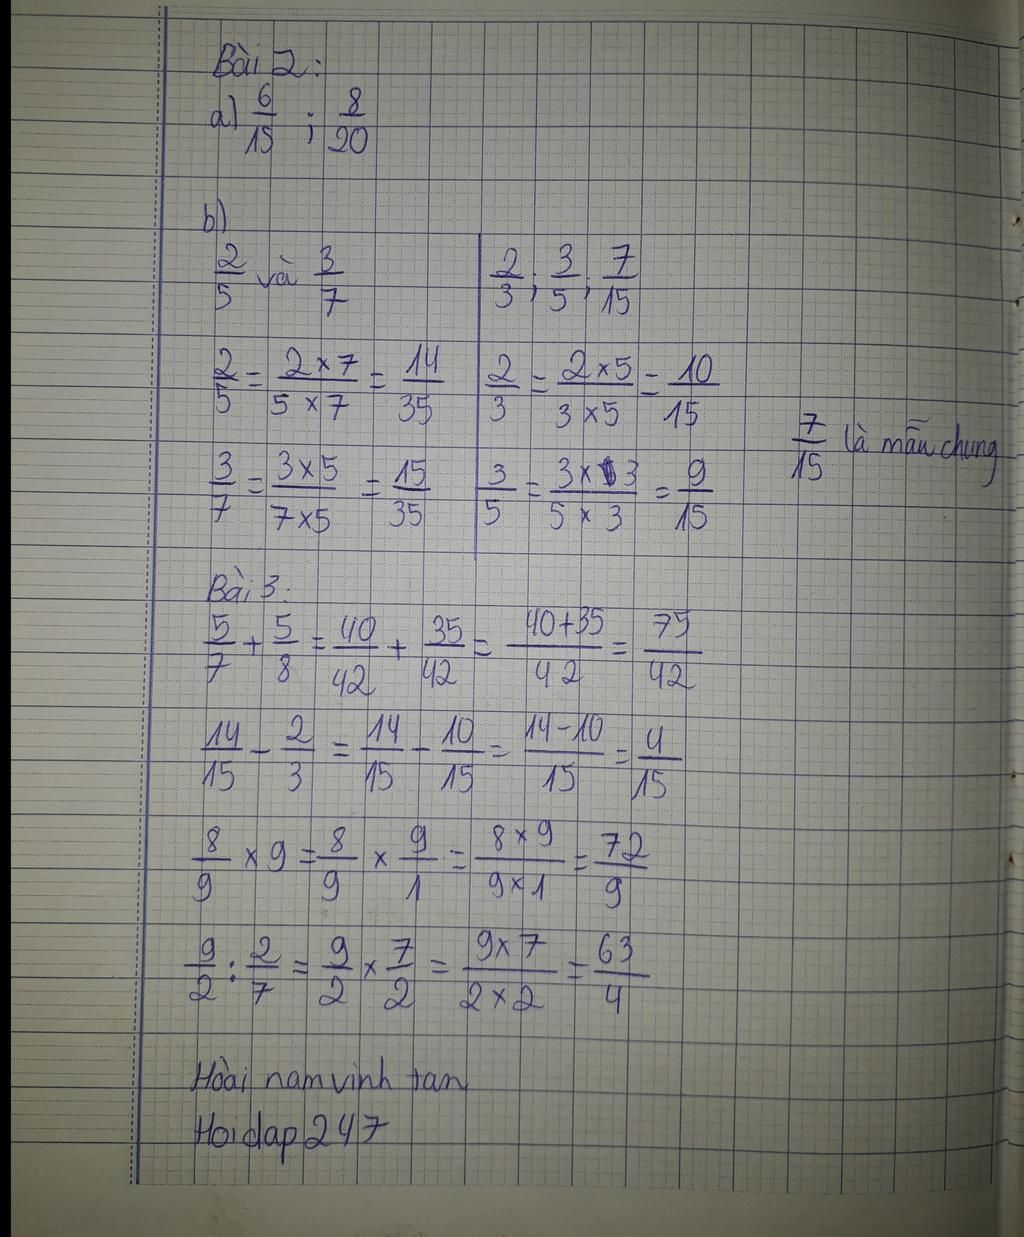 Bài 2:
a) 6/15 ; 8/20
b)
2/5 và 3/7
2/5 = 2×7/5×7 = 14/35
3/7 = 3×5/7×5 = 15/35
2/3 ; 3/5 ; 7/15
2/3 = 2×5/3×5 = 10/15
3/5 = 3×3/5×3 = 9/15
7/15 là mẫu chung
Bài 3:
5/7 + 5/8 = 40/42 + 35/42 = 40+35/42 = 75/42
14/15 - 2/3 = 14/15 - 10/15 = 14-10/15 = 4/15
8/9 × 9 = 8/9 × 9/1 = 8×9/9×1 = 72/9
9/2 : 2/7 = 9/2 × 7/2 = 9×7/2×2 = 63/4
Hoài nam vinh tan
Hoidap 247